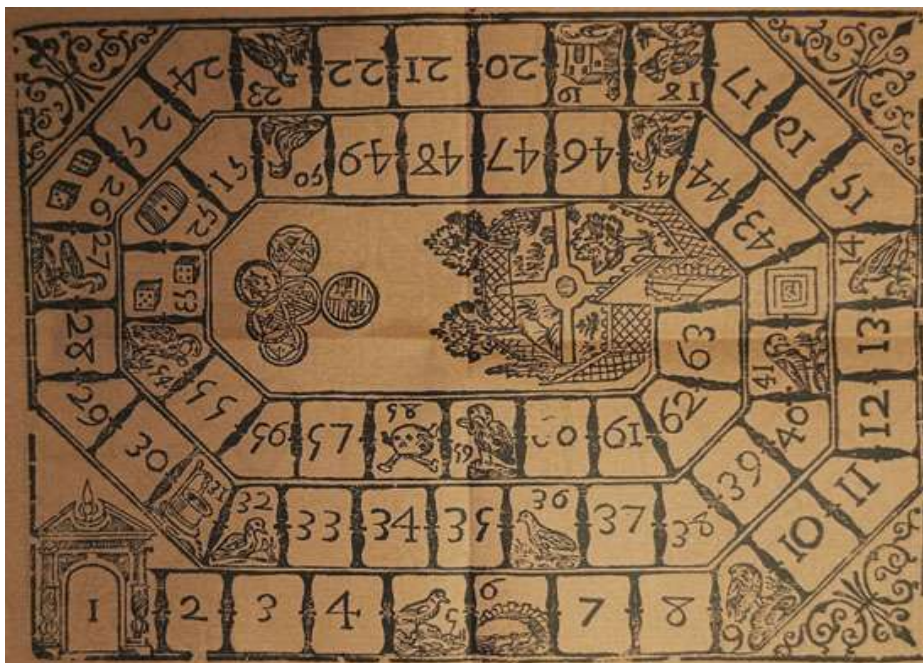 1
2
3
4
5
6
7
8
9
10
11
12
13
14
15
16
17
18
19
20
21
22
23
24
25
26
27
28
29
30
32
33
34
35
36
37
38
39
40
41
43
44
45
46
47
48
49
50
51
52
53
54
55
56
57
58
59
61
62
63